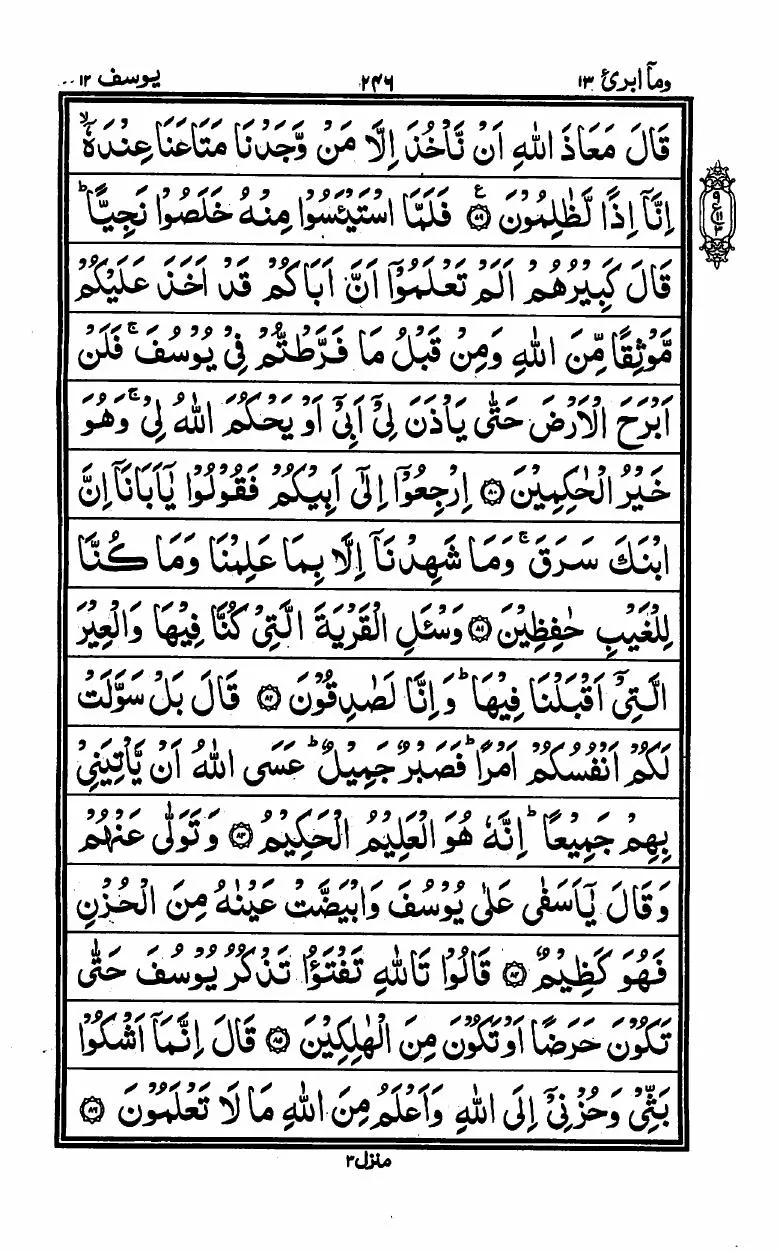 ومآ ابرئ ١٣ ٢٤٦ يوسف ١٢
قَالَ مَعَاذَ اللّٰهِ اَنْ نَّاْخُذَ اِلَّا مَنْ وَّجَدْنَا مَتَاعَنَا عِنْدَهٗٓ ۙ
اِنَّآ اِذًا لَّظٰلِمُوْنَ ۧ ﴿٧٩﴾ فَلَمَّا اسْتَيْـَٔسُوْا مِنْهُ خَلَصُوْا نَجِيًّا ؕ
قَالَ كَبِيْرُهُمْ اَلَمْ تَعْلَمُوْٓا اَنَّ اَبَاكُمْ قَدْ اَخَذَ عَلَيْكُمْ
مَّوْثِقًا مِّنَ اللّٰهِ وَمِنْ قَبْلُ مَا فَرَّطْتُّمْ فِيْ يُوْسُفَ ۚ فَلَنْ
اَبْرَحَ الْاَرْضَ حَتّٰى يَاْذَنَ لِيْٓ اَبِيْٓ اَوْ يَحْكُمَ اللّٰهُ لِيْ ۚ وَهُوَ
خَيْرُ الْحٰكِمِيْنَ ﴿٨٠﴾ اِرْجِعُوْٓا اِلٰٓى اَبِيْكُمْ فَقُوْلُوْا يٰٓاَبَانَآ اِنَّ
ابْنَكَ سَرَقَ ۚ وَمَا شَهِدْنَآ اِلَّا بِمَا عَلِمْنَا وَمَا كُنَّا
لِلْغَيْبِ حٰفِظِيْنَ ﴿٨١﴾ وَسْـَٔلِ الْقَرْيَةَ الَّتِيْ كُنَّا فِيْهَا وَالْعِيْرَ
الَّتِيْٓ اَقْبَلْنَا فِيْهَا ؕ وَاِنَّا لَصٰدِقُوْنَ ﴿٨٢﴾ قَالَ بَلْ سَوَّلَتْ
لَكُمْ اَنْفُسُكُمْ اَمْرًا ؕ فَصَبْرٌ جَمِيْلٌ ؕ عَسَى اللّٰهُ اَنْ يَّاْتِيَنِيْ
بِهِمْ جَمِيْعًا ؕ اِنَّهٗ هُوَ الْعَلِيْمُ الْحَكِيْمُ ﴿٨٣﴾ وَتَوَلّٰى عَنْهُمْ
وَقَالَ يٰٓاَسَفٰى عَلٰى يُوْسُفَ وَابْيَضَّتْ عَيْنٰهُ مِنَ الْحُزْنِ
فَهُوَ كَظِيْمٌ ﴿٨٤﴾ قَالُوْا تَاللّٰهِ تَفْتَؤُا تَذْكُرُ يُوْسُفَ حَتّٰى
تَكُوْنَ حَرَضًا اَوْ تَكُوْنَ مِنَ الْهٰلِكِيْنَ ﴿٨٥﴾ قَالَ اِنَّمَآ اَشْكُوْا
بَثِّيْ وَحُزْنِيْٓ اِلَى اللّٰهِ وَاَعْلَمُ مِنَ اللّٰهِ مَا لَا تَعْلَمُوْنَ ﴿٨٦﴾
منزل ٣
٩
ع ١١
٣